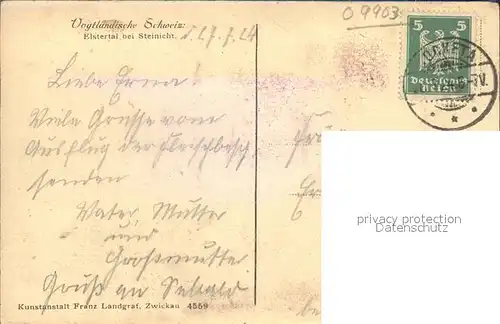 O 9903
Vogtländische Schweiz:
Elstertal bei Steinicht.
5 5
Deutsches
Reich
Liebe Erna!
Viele Grüsse vom
Ausflug der Fleischbesch
senden
Vater, Mutter
und
Großmutter
Gruß an
privacy protection
Datenschutz
Kunstanstalt Franz Landgraf, Zwickau 4559